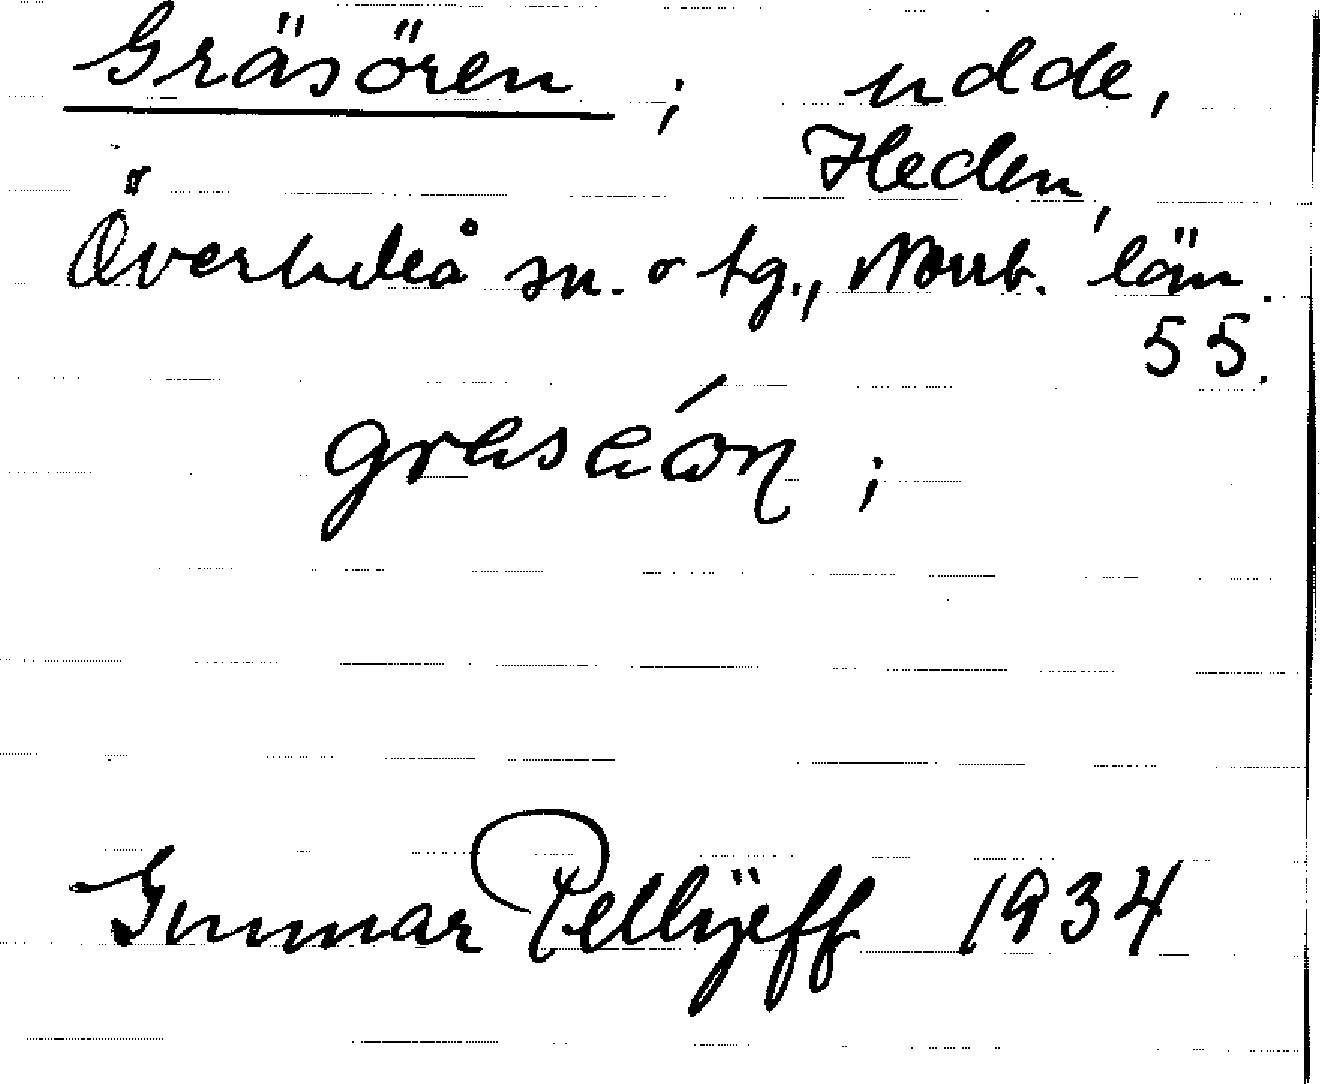 Gräsören ; udde,
Heden,
Överluleå sn. o tg., Norrb. län.
55.
;
Gunnar Pellijeff 1934